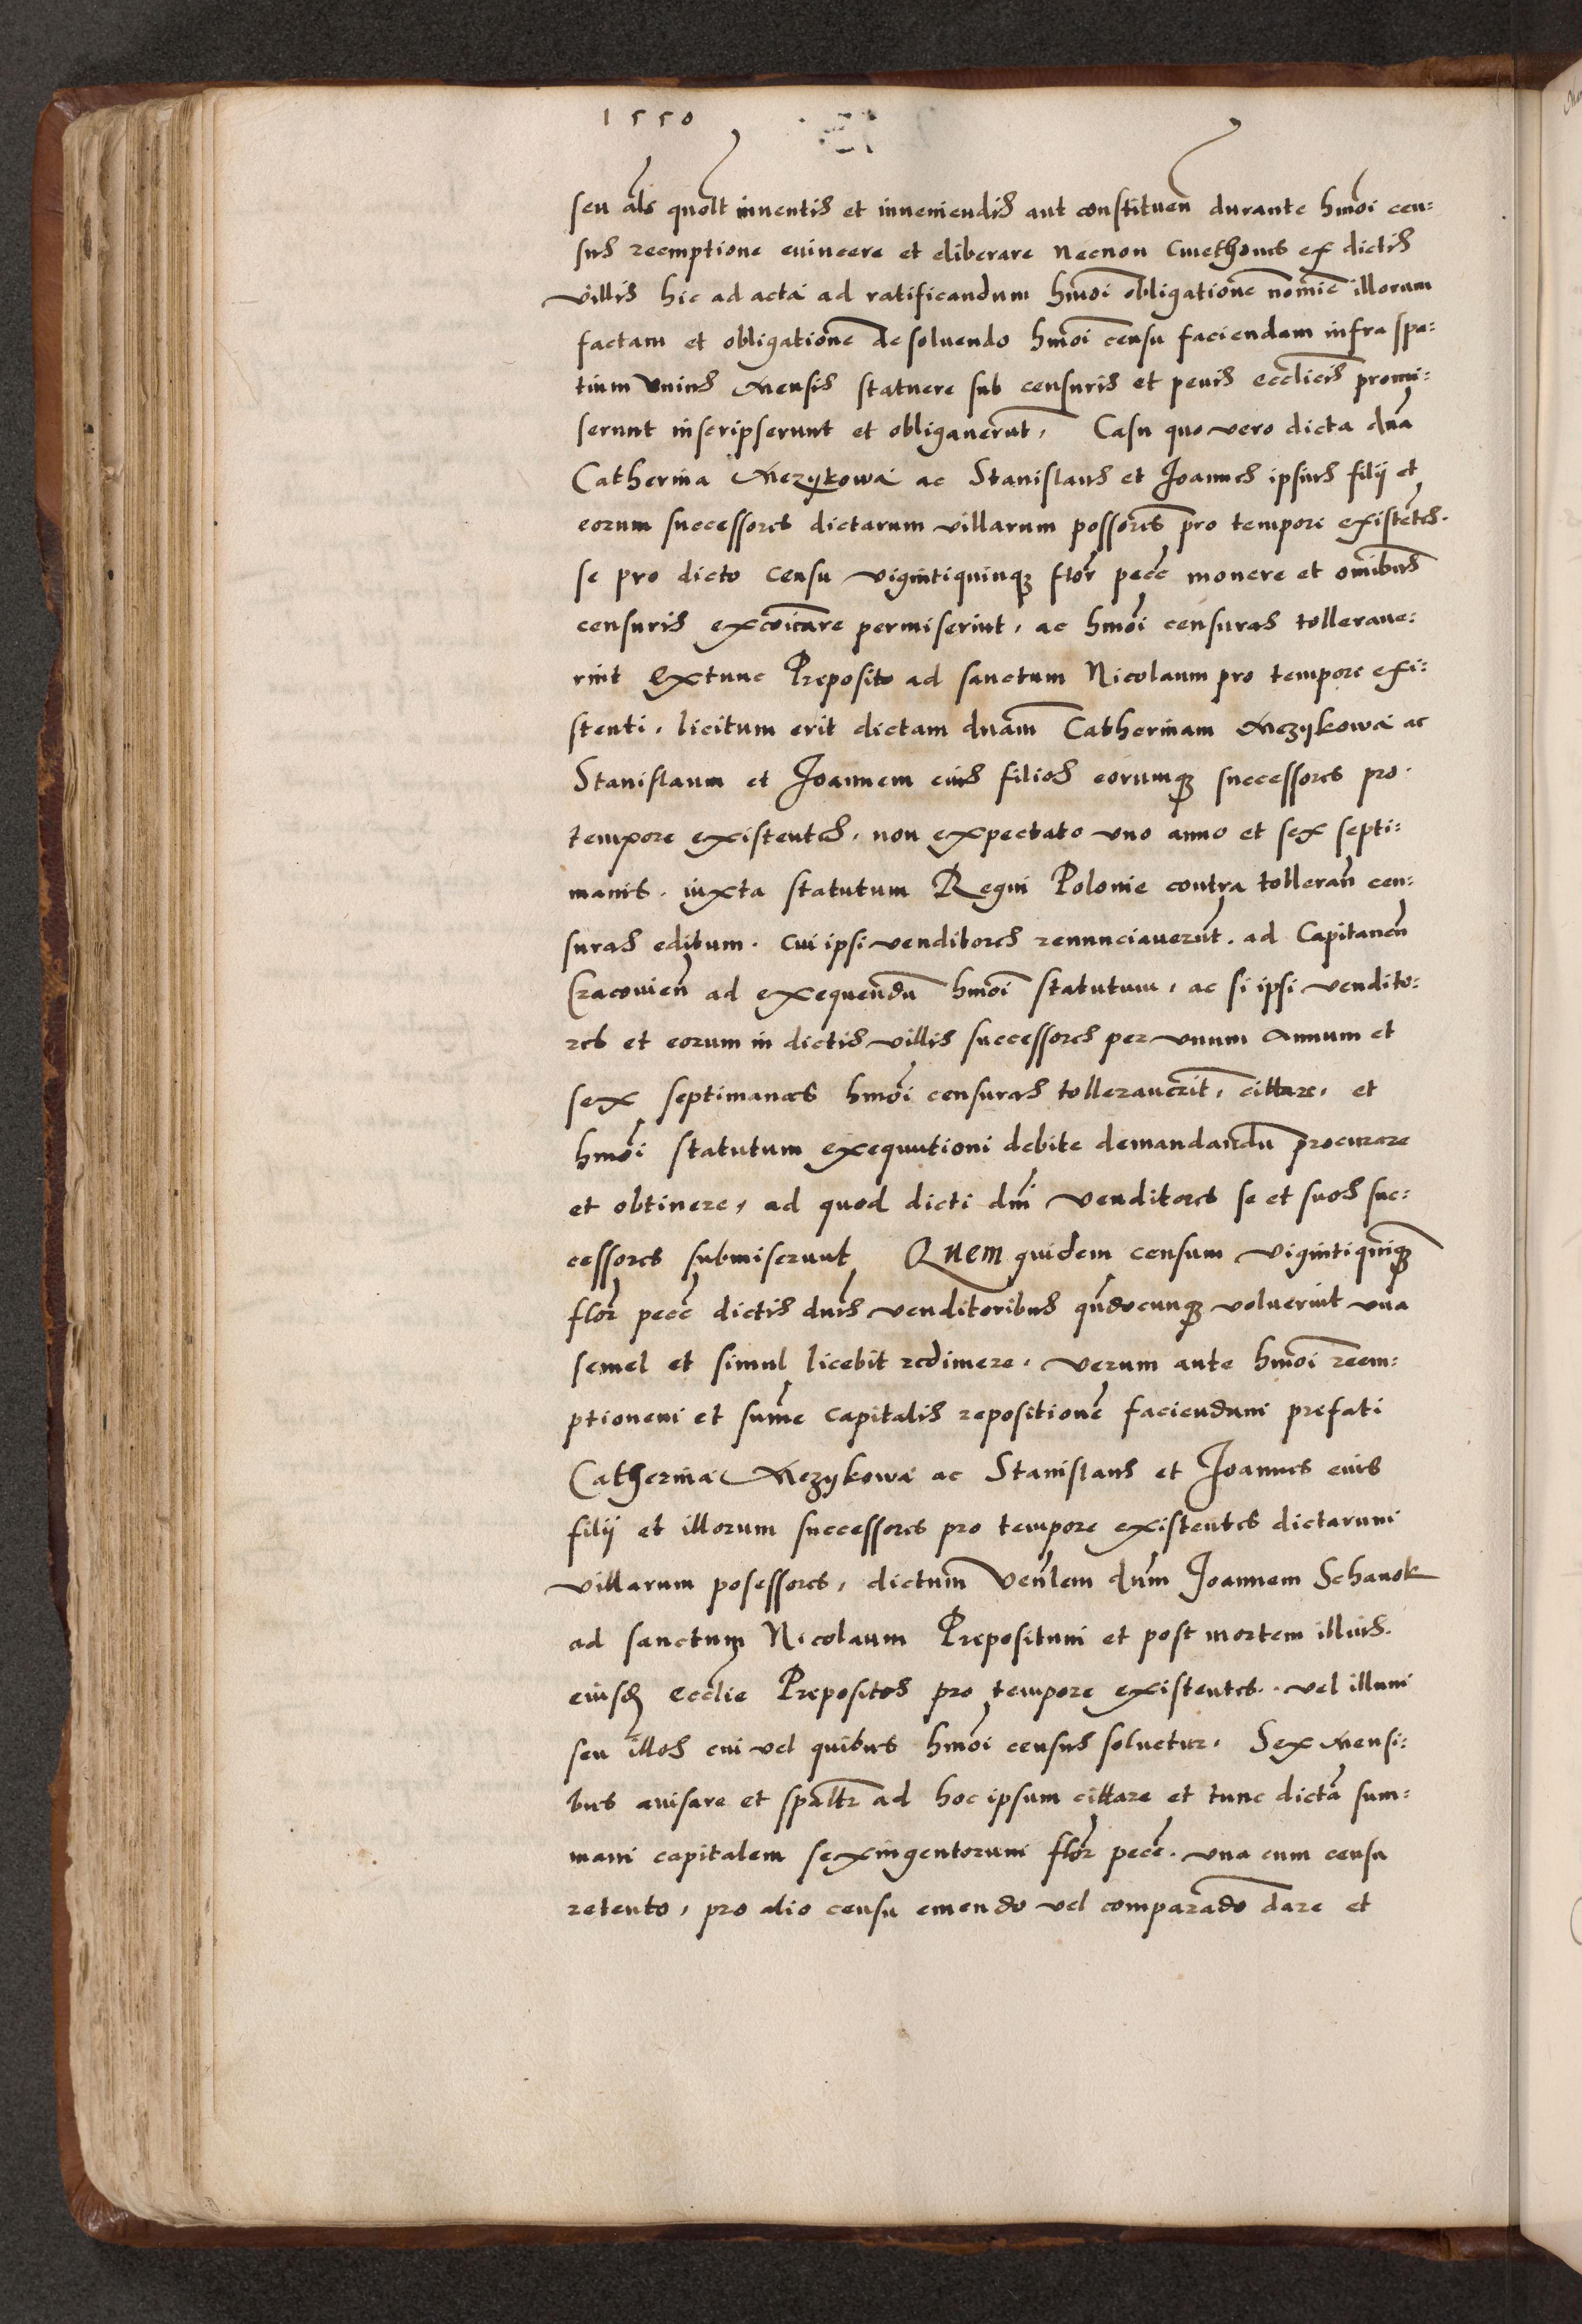 1550
seu als quolt inuentis et inueniendis aut constituen durante hmoi cen=
sus reemptione euincere et eliberare necnon Cmethones ex dictis
villis hic ad acta ad ratificandum hmoi obligatione nomie illorum
factam et obligatione de soluendo hmoi censu faciendam infra spa=
tium vnius mensis statuere sub censuris et penis ecclicis promi=
serunt inscripserunt et obligauerut, Casu quo vero dicta dna
Catherina Mezykowa ac Stanislaus et Joannes ipsius filij et
eorum successores dictarum villarum possores pro tempore existetes.
se pro dicto censu vigintiquinq flor pecc monere et omibus
censuris excoicare permiserint, ac hmoi censuras tolleraue=
rint Extunc Preposito ad sanctum Nicolaum pro tempore exi=
stenti, licitum erit dictam dnam Catherinam Mezykowa ac
Stanislaum et Joannem eius filios eorumq successores pro.
tempore existentes, non expectato vno anno et sex septi=
manis. iuxta statutum Regni Polonie contra tolleran cen=
suras editum. cui ipsi venditores renunciauerut. ad Capitaneu
Cracouien ad exequendu hmoi statutum, ac si ipsi vendito=
res et eorum in dictis villis successores per vnum Annum et
sex septimanas hmoi censuras tollerauerit, cittare, et
hmoi statutum exequutioni debite demandandu procurare
et obtinere, ad quod dicti dni venditores se et suos suc=
cessores submiserunt Quem quidem censum vigintiquinq
flor pecc dictis dnis venditoribus qndocunq voluerint vna
semel et simul licebit redimere. verum ante hmoi reem=
ptionem et sume capitalis repositione faciendum prefati
Catherina Mezykowa ac Stanislaus et Joannes eius
filij et illorum successores pro tempore existentes dictarum
villarum posessores, dictum Venlem dnm Joannem Schanok
ad sanctum Nicolaum Prepositum et post mortem illius.
eiusd ecclie Prepositos pro tempore existentes. vel illum
seu illos cui vel quibus hmoi census soluetur, Sex mensi=
bus auisare et spaltr ad hoc ipsum cittare et tunc dicta sum=
mam capitalem sexingentorum flor pecc. vna cum censu
retento, pro alio censu emendo vel comparado dare et